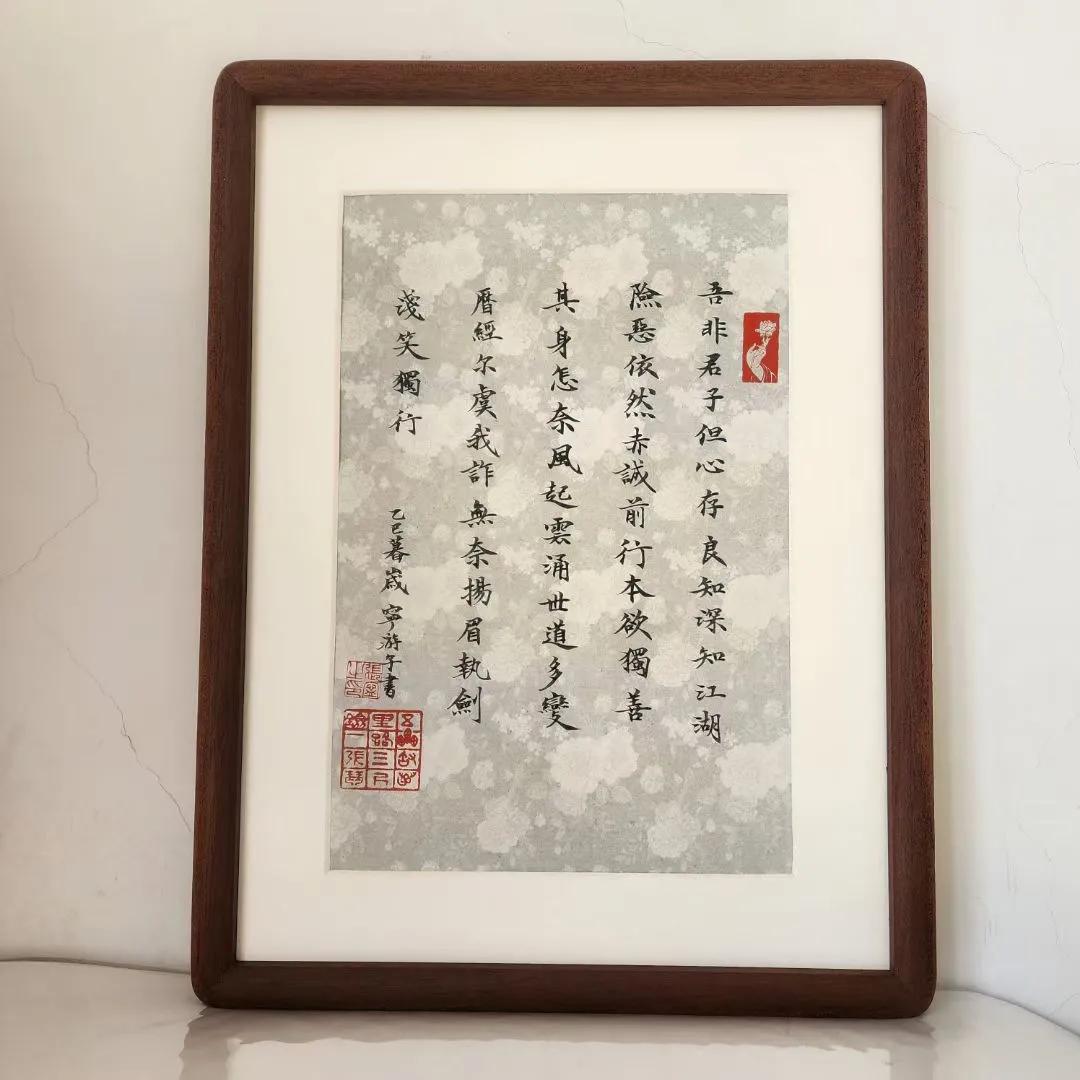 吾非君子但心存良知深知江湖
險惡依然赤誠前行本欲獨善
其身怎奈風起雲涌世道多變
曆經尔虞我詐無奈揚眉執劍
淺笑獨行
乙巳暮歲寧游午書